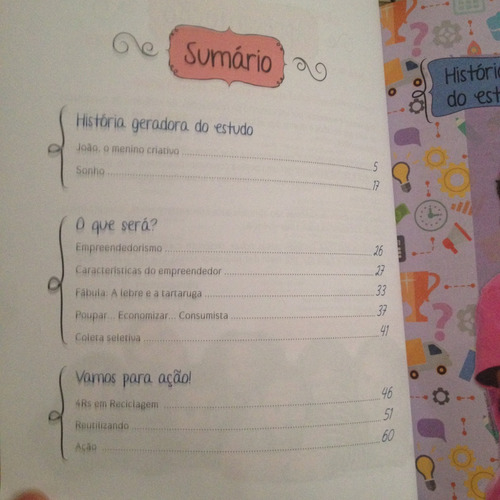 Sumário
História geradora do estudo
João, o menino criativo 5
Sonho 17
O que será?
Empreendedorismo 26
Características do empreendedor 27
Fábula: A lebre e a tartaruga 33
Poupar... Economizar... Consumista 37
Coleta seletiva 41
Vamos para ação!
4Rs em Reciclagem 46
Reutilizando 51
Ação 60
Históri
do est